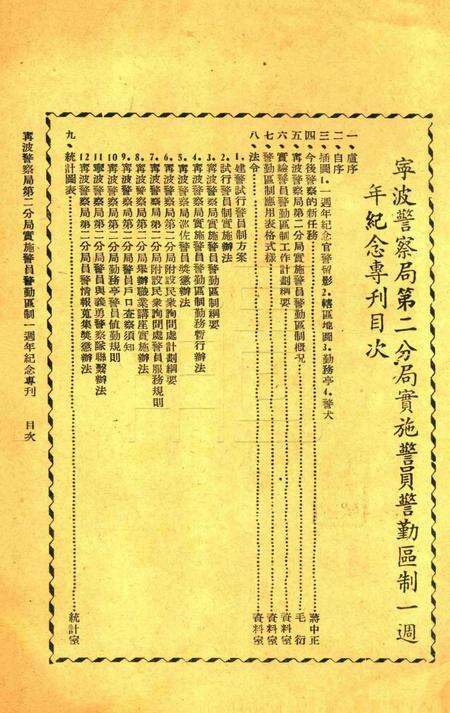 寧波警察局第二分局實施警員警勤區制一週
年紀念專刊目次
一、盧序
二、自序
三、插圖1.一週年紀念官警留影2.轄區地圖3.勤務亭4.警犬
四、今後警察的新任務 蔣中正
五、寗波警察局第二分局實施警員警勤區制概況 毛衍
六、實驗警員警勤區制工作計劃綱要 資料室
七、警勤區制應用表格式樣 資料室
八、法令 資料室
1.建警試行警員制方案
2.試行警員制實施辦法
3.寗波警察局實施警員警勤區制綱要
4.寗波警察局實施警員警勤區制勤務暫行辦法
5.寗波警察局第二分局官佐警員奬懲辦法
6.寗波警察局第二分局附設民衆詢問處計劃綱要
7.寗波警察局第二分局附設民衆詢問處警員服務規則
8.寗波警察局第二分局舉辦職業講座實施辦法
9.寗波警察局第二分局警員戶口查察須知
10寗波警察局第二分局勤務亭警員值勤規則
11寧波警察局第二分局警員與義勇警察隊聯繫辦法
12寗波警察局第二分局員警情報蒐集奬懲辦法
九、統計圖表 統計室
寗波警察局第二分局實施警員警勤區制一週年紀念專刊 目次